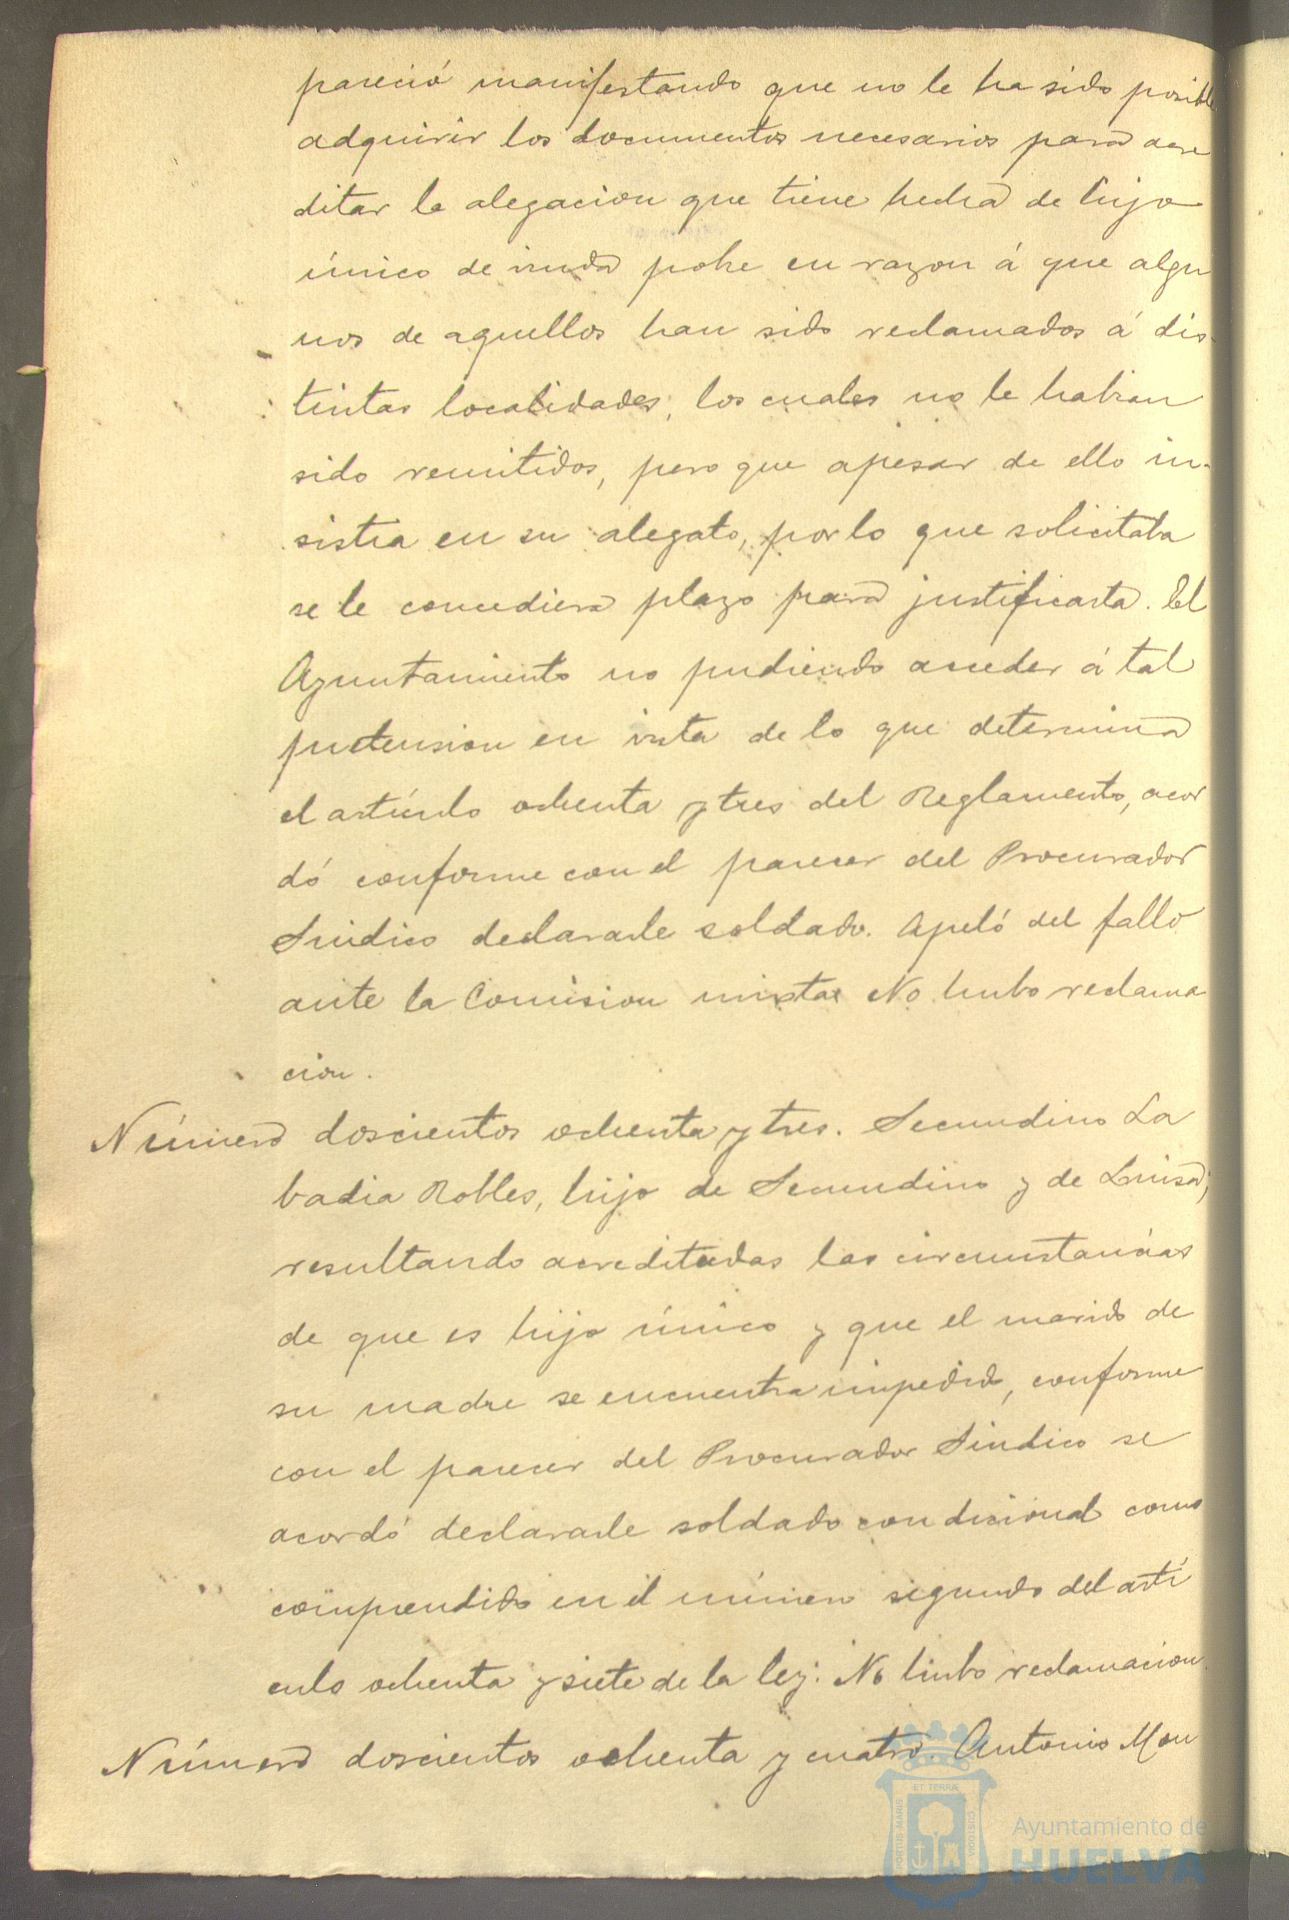 pareció manifestando que no le ha sido posible
adquirir los documentos necesarios para acre
ditar la alegacion que tiene hecha de hijo
único de viuda pobre en razon á que algu
nos de aquellos han sido reclamados á dis-
tintas localidades, los cuales no le habian
sido remitidos, pero que apesar de ello in-
sistia en su alegato, por lo que solicitaba
se le concediera plazo para justificarla. El
Ayuntamiento no pudiendo acceder á tal
pretension en vista de lo que determina
el artículo ochenta y tres del Reglamento, acor
dó conforme con el parecer del Procurador
Síndico declararle soldado. Apeló del fallo
ante la Comision mixta. No hubo reclama
cion.
Número doscientos ochenta y tres. Secundino La
badia Robles, hijo de Secundino y de Luisa;
resultando acreditadas las circunstancias
de que es hijo único y que el marido de
su madre se encuentra impedido, conforme
con el parecer del Procurador Sindico se
acordó declararle soldado condicional como
comprendido en el número segundo del artí
culo ochenta y siete de la ley. No hubo reclamacion.
Número doscientos ochenta y cuatro. Antonio Mon
PORTUS MARIS ET TERRÆ CUSTODIA
Ayuntamiento de
HUELVA